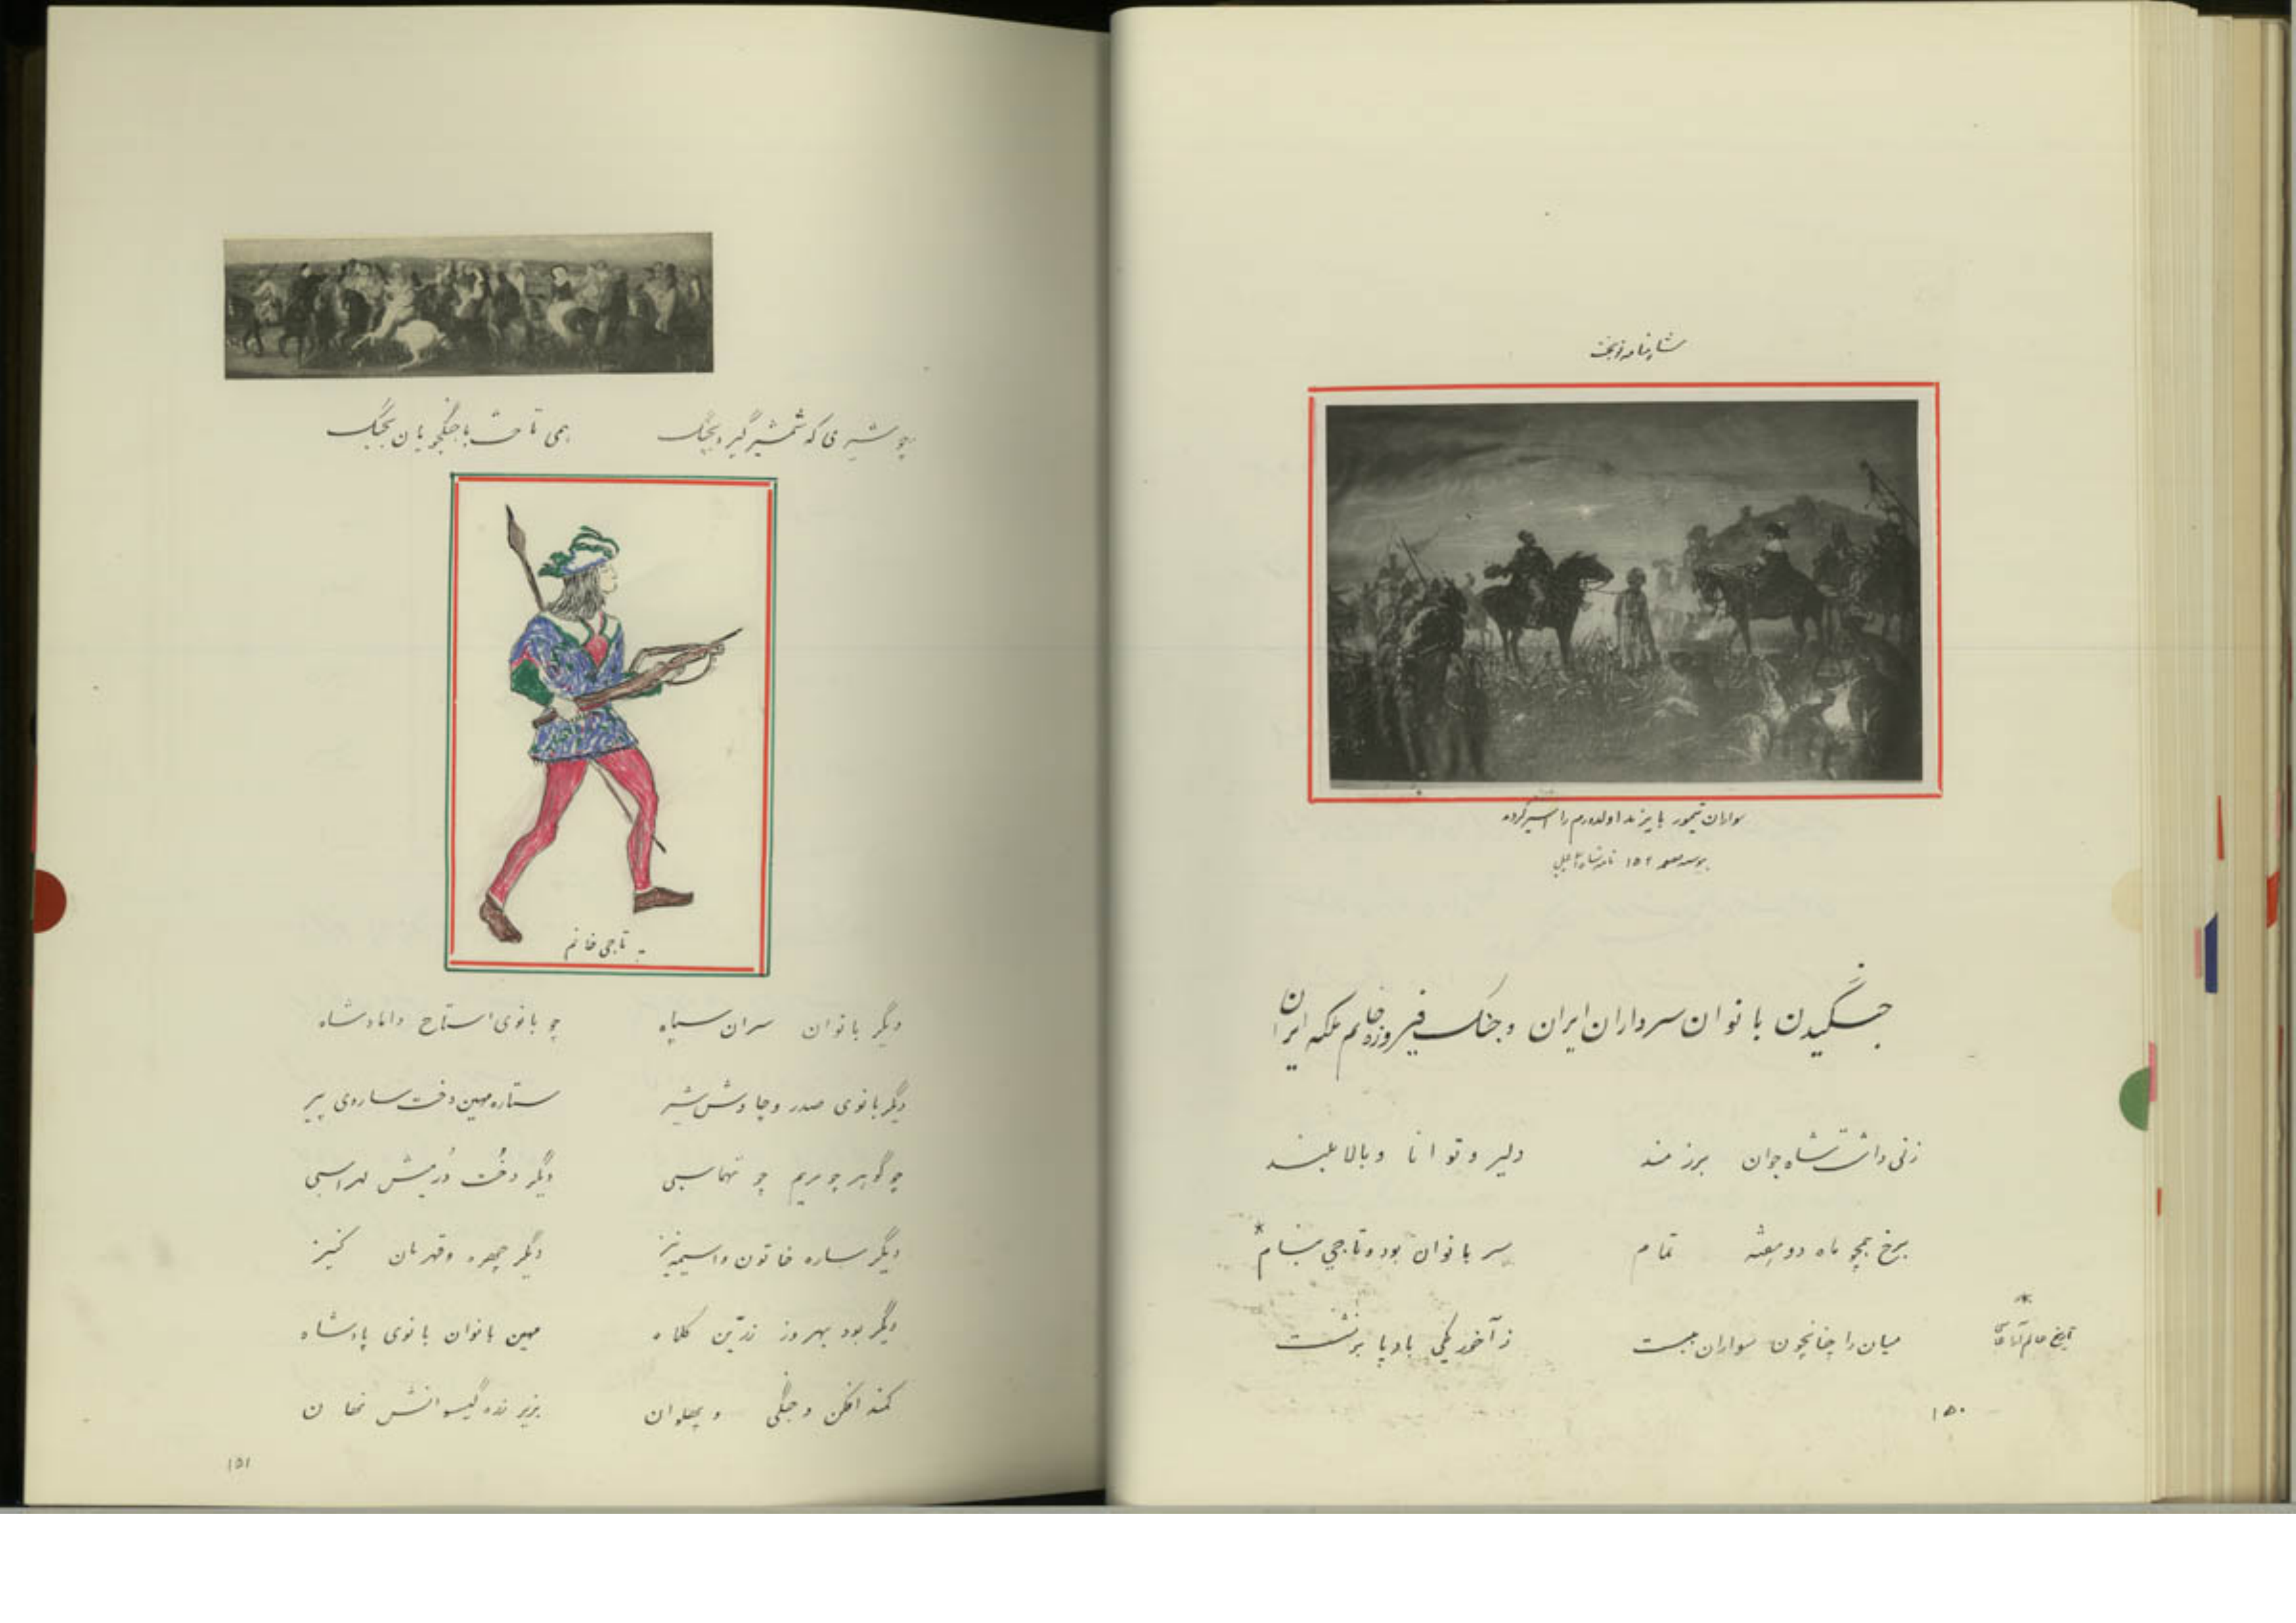 شاهنامه نوبخت
سواران تیمور بایزید اولدورم را اسیر کرده
جنگیدن بانوان سرداران ایران و جنگ فیروزه خانم ملکه ایران
زنی داشت شاه جوان برزمند دلیر و توانا و بالا بلند
برخ همچو ماه دو هفته تمام سر بانوان بود و تاجی بنام*
میان را چنانچون سواران ببست ز آخور یکی بادپا برنشست
*
تاریخ عالم آرا
۱۵۰
چو شیری که شمشیر گیرد بچنگ همی تاخت با جنگجویان بجنگ
تاجی خانم
دیگر بانوان سران سپاه چو بانوی استاج داماد شاه
دیگر بانوی صدر و چاوش شیر ستاره مهین دخت ساروی پیر
چو گوهر چو مریم چو تهماسبی دیگر دخت درمیش لهراسبی
دیگر ساره خاتون و اسیمه نیز دیگر چهره و قهرمان کنیز
دیگر بود بهروز زرّین کلاه مهین بانوان بانوی پادشاه
کمند افکن و جنگی و پهلوان بزیر زره گیسوانش نهان
۱۵۱